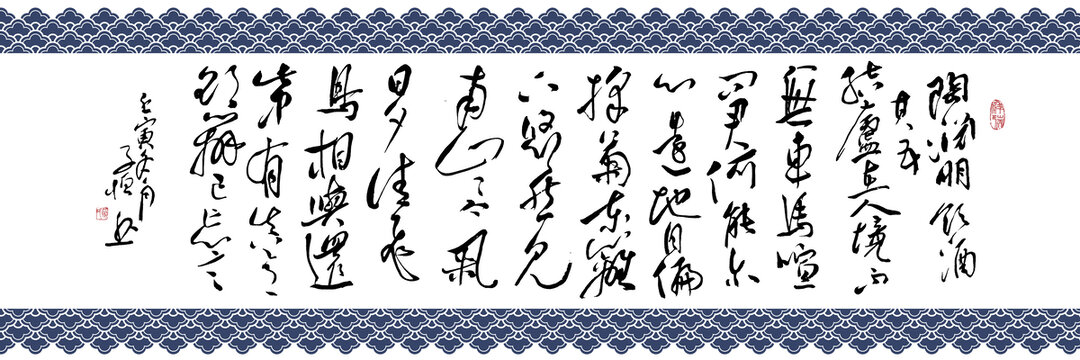 陶渊明饮酒
其五
结廬在人境而
無車馬喧
问君何能尔
心遠地自偏
採菊东籬
下悠然见
南山山氣
日夕佳飞
鸟相與還
此中有真意
欲辨已忘言
壬寅
书